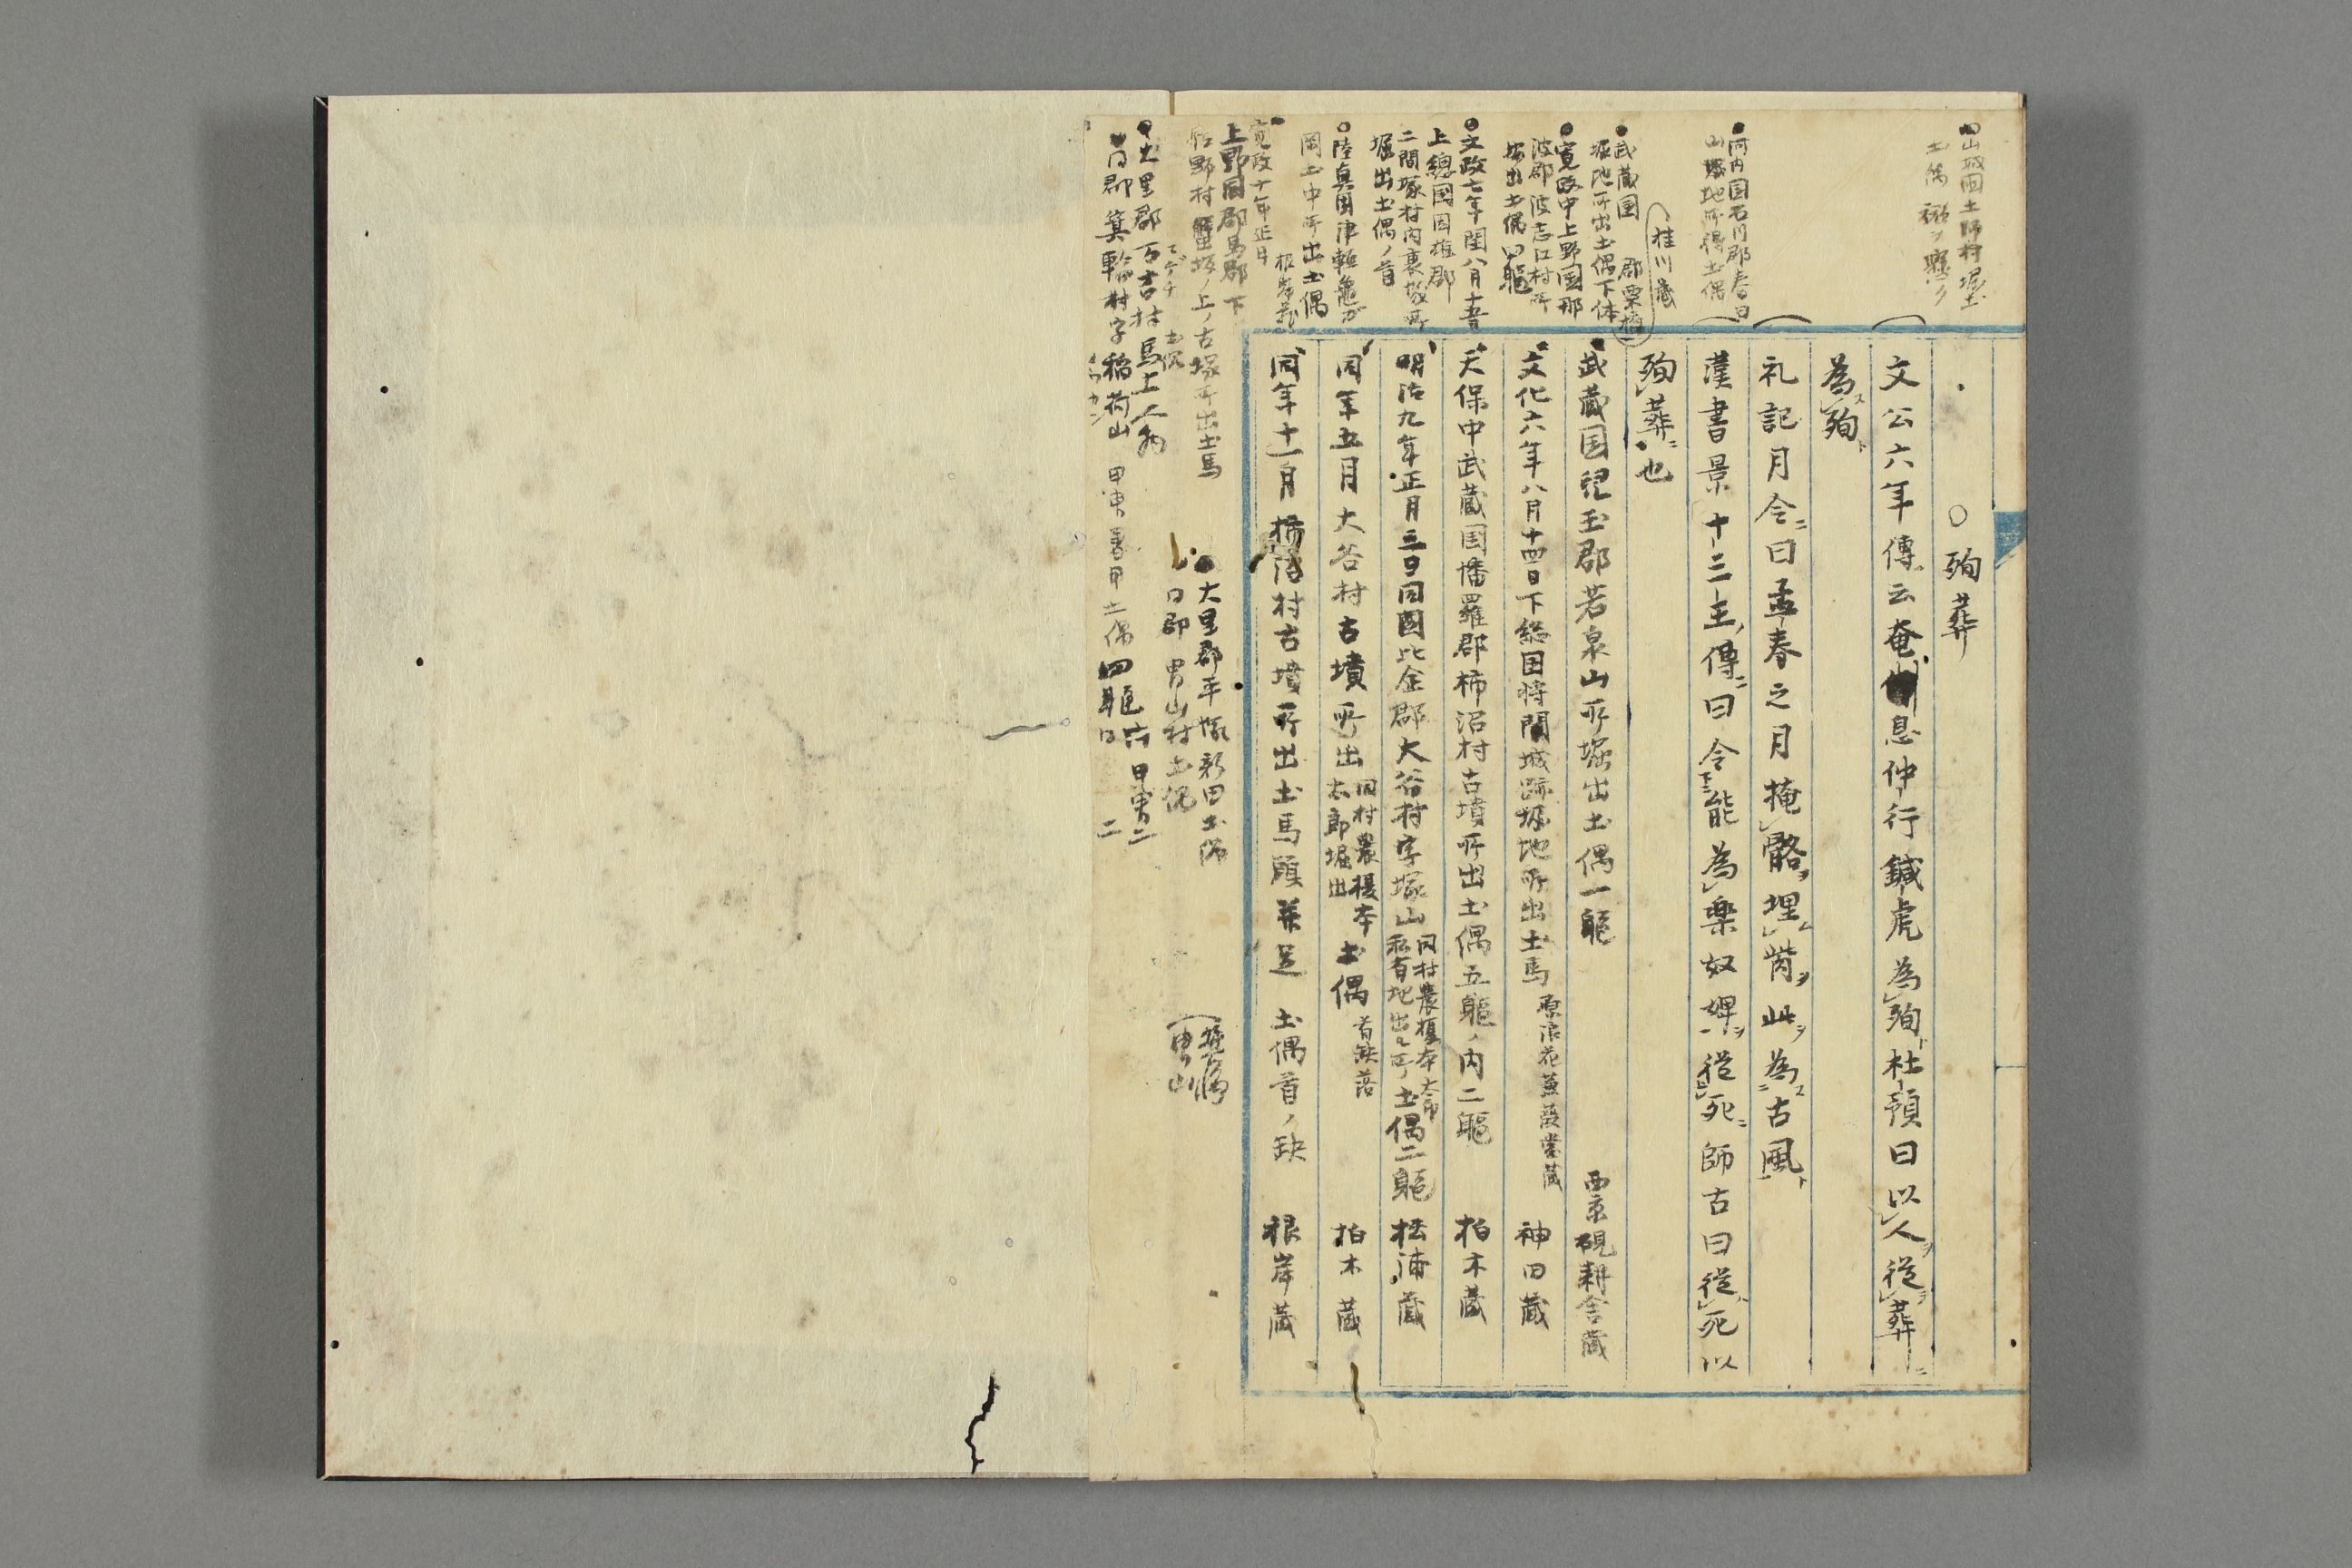 ○殉葬
文公六年傳云奄息仲行鍼虎為殉杜預曰以人従葬
為殉
礼記月令ニ曰孟春之月掩骼埋胔此ヲ為古風ト
漢書景十三王傳ニ曰令能為楽奴婢ヲ従死ニ師古曰従死以
殉葬也
武蔵国児玉郡若泉山所堀出土偶一軀 西京硯耕舎蔵
文化六年八月十四日下総国将門城跡堀地所出土馬 原浪花蒹葭堂蔵 神田蔵
天保中武蔵国幡羅郡柿沼村古墳所出土偶五軀ノ内二軀 柏木蔵
明治九年正月三日同国比企郡大谷村字塚山 同村農榎本 私有地出ル所 土偶二軀 松浦蔵
同年五月大谷村古墳所出 同村農榎本 太郎堀出 土偶 首缺落 柏木蔵
同年十一月柿沼村古墳所出土馬頭並足 土偶首ノ缺 根岸蔵
山城国土師村堀出
土偶
河内国石川郡春日
山堀地所得土偶
桂川蔵
武蔵国 郡栗橋
堀地所出土偶下体
寛政中上野国那
波郡波志江村所
堀出土偶四軀
文政七年閏八月十五日
上總国
二間塚村内裏塚所
堀出土偶ノ首
陸奥国津軽亀ガ
岡土中所出土偶
根岸蔵
寛政十年正月
上野国群馬郡下
佐野村蟹坂ノ上ノ古塚所出土馬
大里郡平塚新田土偶
同郡冑山村土偶
大里郡万吉村馬上
同郡箕輪村字稲荷山 甲冑着甲土偶四軀